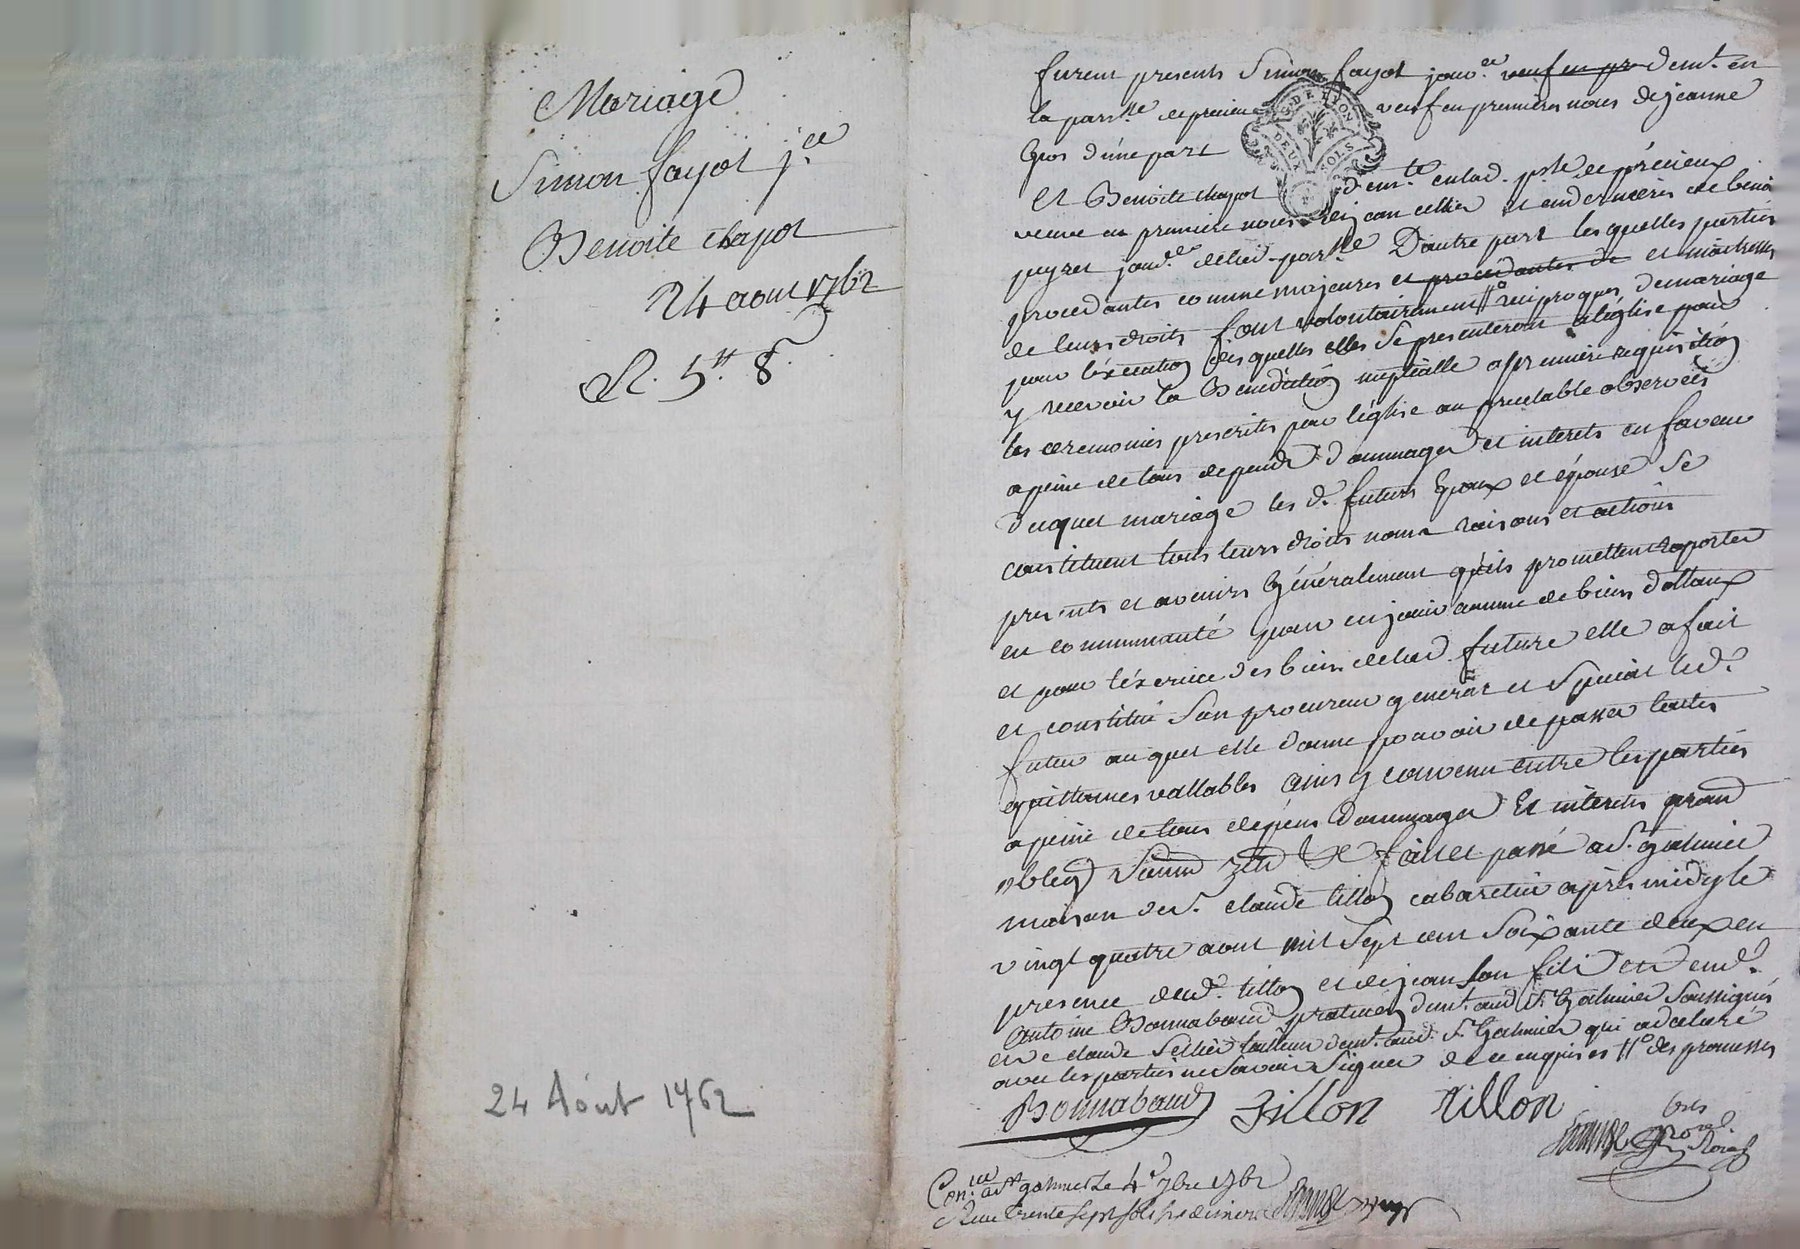 Mariage
Simon fayot j.ee
Benoite chapot
24 aout 1762
R. 5.tt 8.
24 Août 1762
furent presents Simon fayot jour.er veuf en pr demt. en
la parsse. de precieu veuf en premieres noces de jeanne
d'une part
G. DE LION
DEUX SOLS
Et Benoite chapot demte. enlad. psse de précieux
veuve en premiere noces de jean cellier et en dernieres de benoit
peyret jour.er delad. parsse D'autre part lesquelles parties
procedantes comme majeures et procedantes de et maitresses
de leurs droits font volontairement reciproques de mariage
pour l'éxécution desquelles elles se presenteront a l'église pour
y recevoir la Benediction nuptialle a premiere requisition
les ceremonies prescrites par l'église au prealable observées
a peine de tous depends dommages et interets en faveur
duquel mariage les d. futurs Epoux et épouse se
constituent tous leurs droits noms raisons et actions
presents et avenirs Généralement qu'ils promettent aporter
en communauté pour en jouir comme de biens dottaux
et pour l'éxercice des biens delad. future elle a fait
et constitué son procureur general et special led.
futur auquel elle donne pouvoir de passer toutes
quittances vallables ainsy convenu entre les parties
a peine de tous depens dommages Et interets
fait et passé a St. galmier
maison de sr. claude tillon cabaretier après midy le
vingt quatre aout mil sept cent soixante deux en
presence dud. tillon et de jean son fils
Antoine Bonnabaud praticien demt. aud. St. Galmier soussignés
et de claude Sellier tailleur demt. aud. St. Galmier qui a declaré
avec les parties ne savoir signer de ce enquis et tt° des promesses
Bonnabaud Tillon tillon
Con.lé a St galmier le 4e 7bre 1762
Recu trente sept sols six deniers